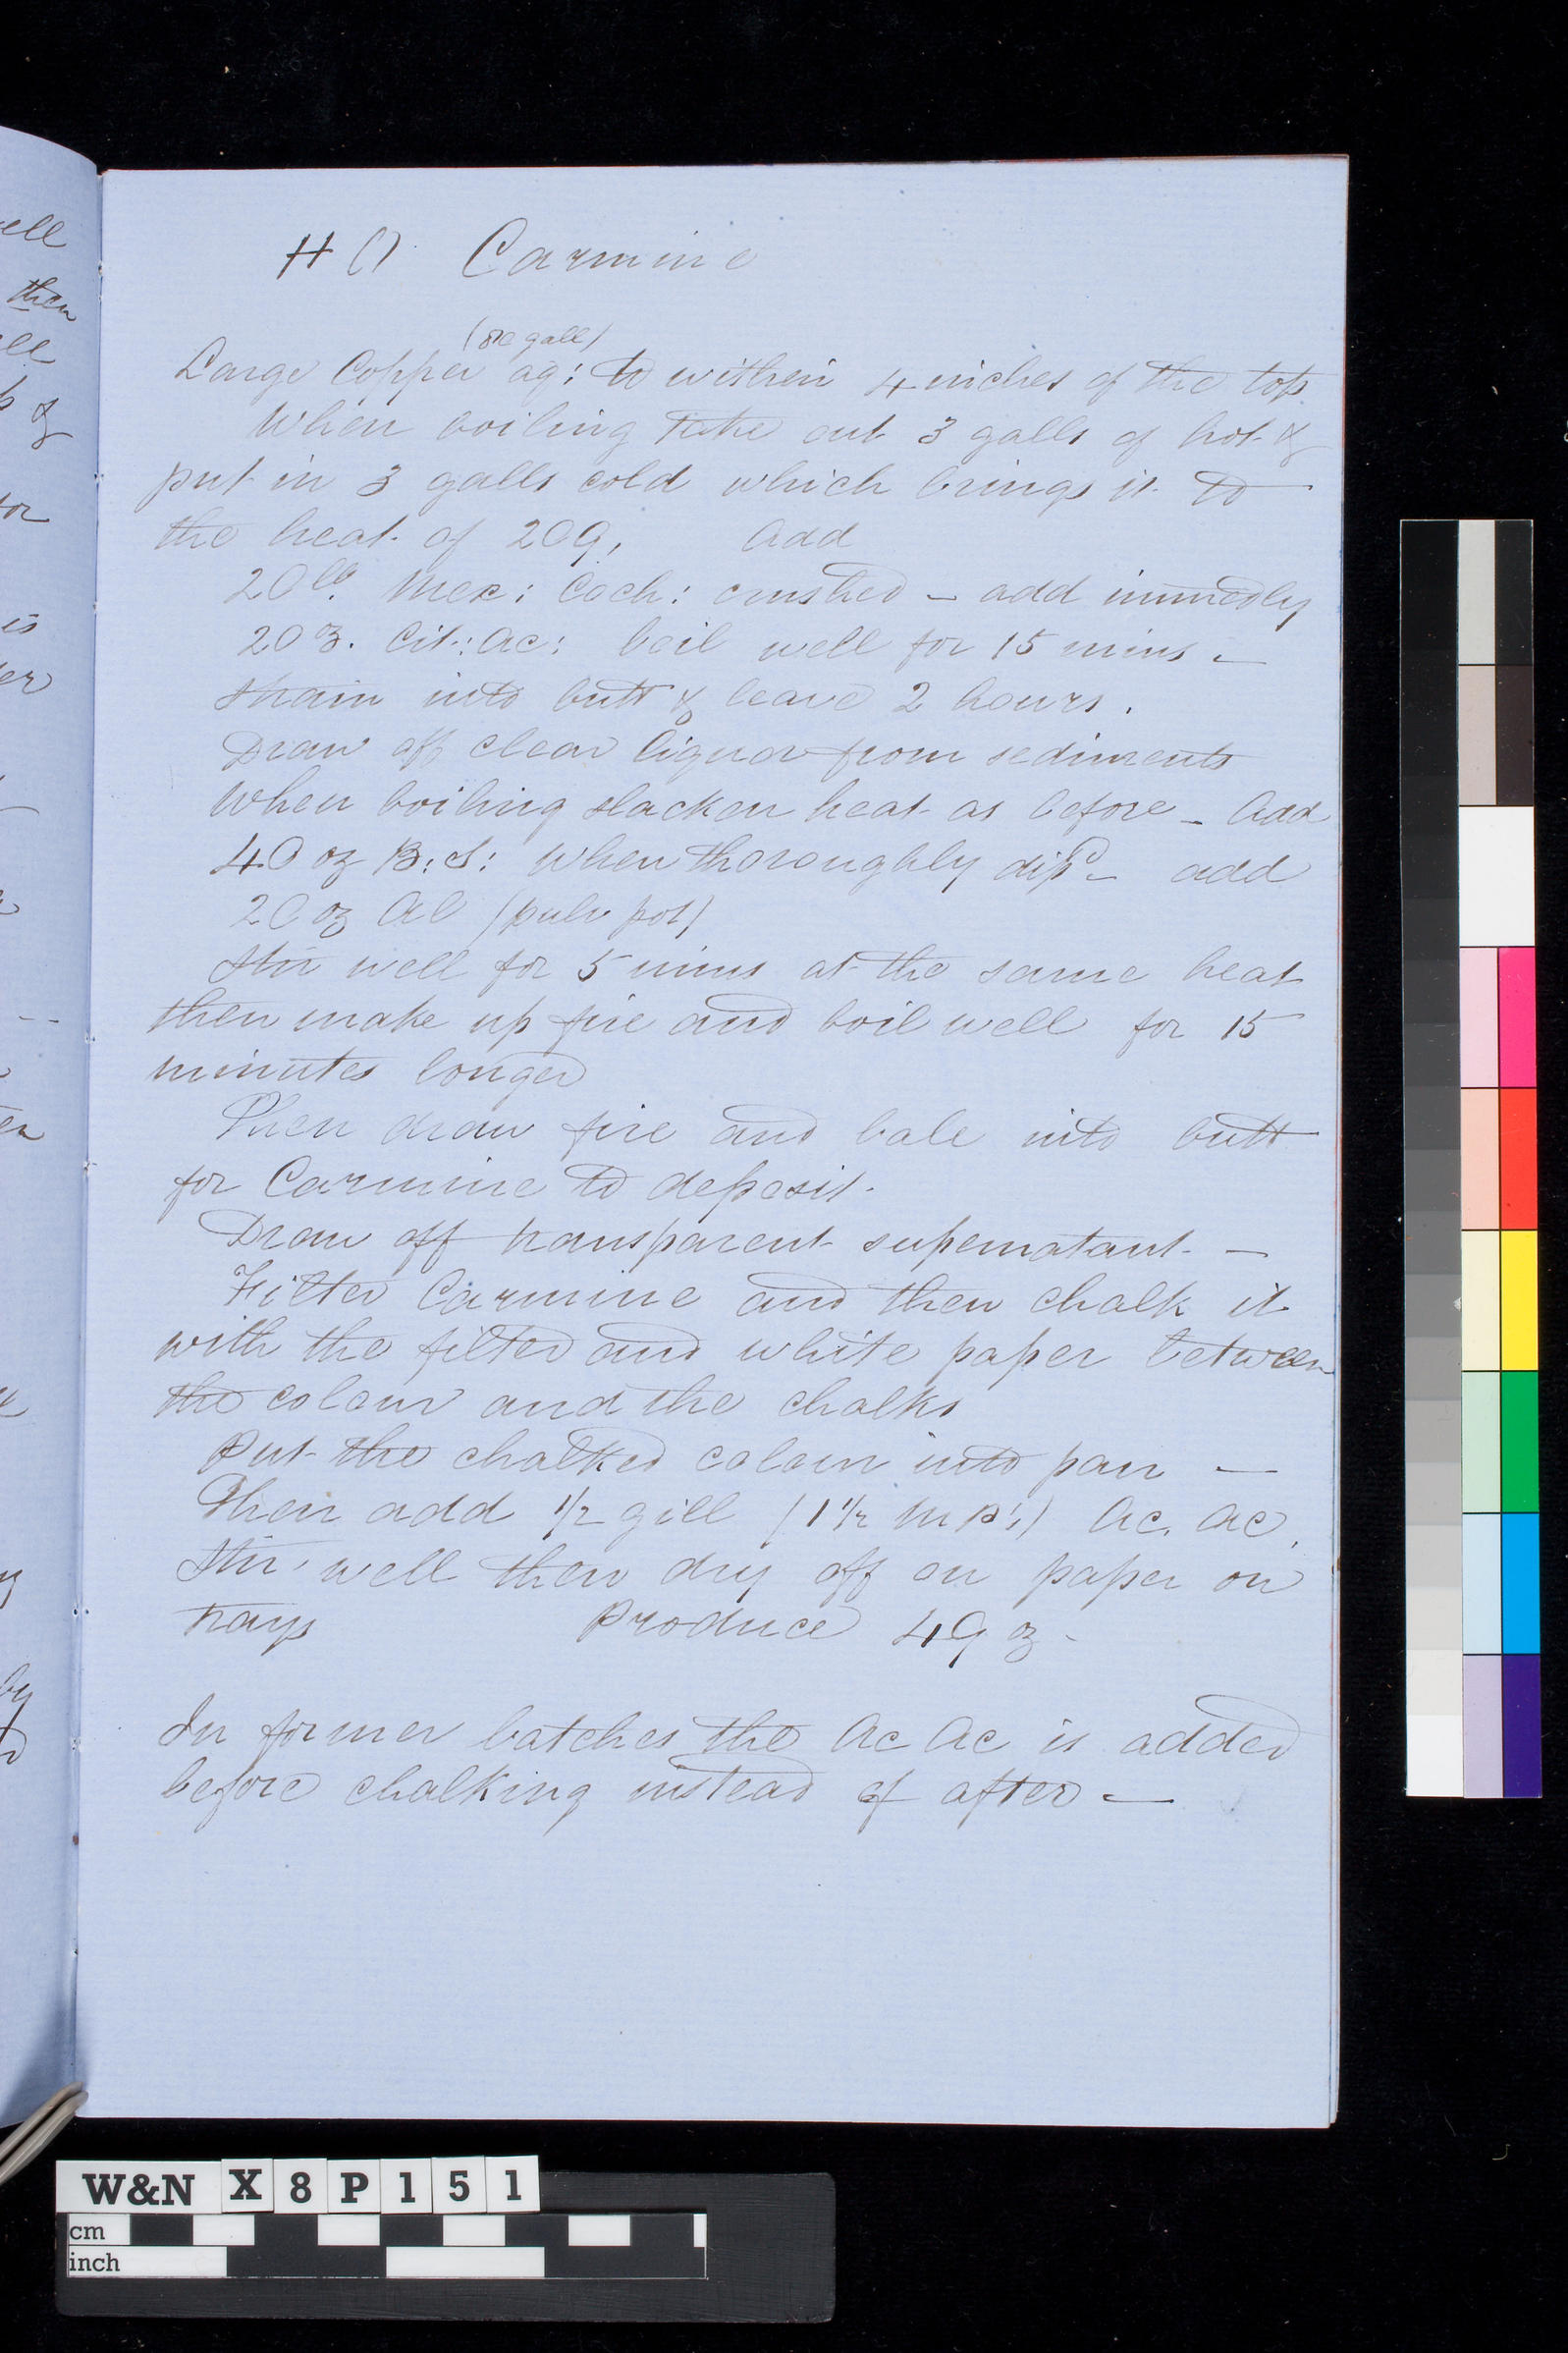 ell
then
ell
p &
for
is
er
by
H O Carmine
gall)
Large Copper aq: to within 4 inches of the top.
When boiling take out 3 galls of hot &
put in 3 galls cold which brings it to
the heat of 209, Add
20 lb. Mex: Coch: crushed – add immedly
20 oz. Cit: Ac: boil well for 15 mins –
strain into butt & leave 2 hours.
Draw off clear liquor from sediments
When boiling slacken heat as before – Add
40 oz B: S: when thoroughly disd – add
20 oz Al (pulv pot)
Stir well for 5 mins at the same heat
then make up fire and boil well for 15
minutes longer
Then draw fire and bale into butt
for Carmine to deposit.
Draw off transparent supernatant –
Filter Carmine and then chalk it
with the filter and white paper between
the colour and the chalks
Put the chalked colour into pan –
Then add 1/2 gill (1 1/2 M P's) Ac. Ac.
Stir well then dry off on paper on
trays Produce 49 oz –
In former batches the Ac Ac is added
before chalking instead of after –
W&N X 8 P 1 5 1
cm
inch